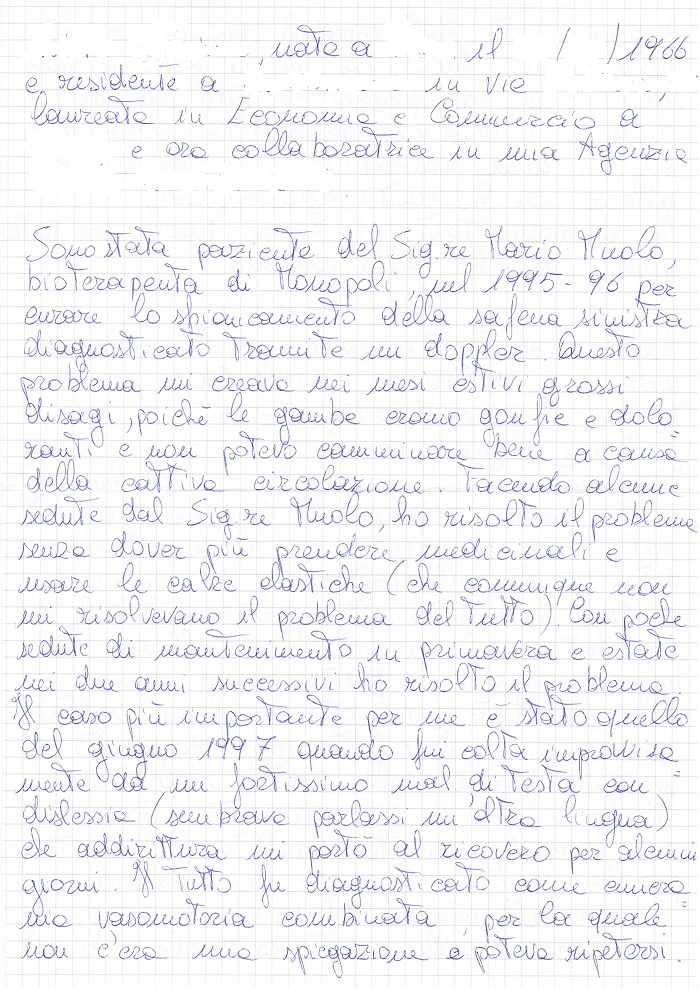 , nata a il / /1966
e residente a in via ,
laureata in Economia e Commercio a
e ora collaboratrice in una Agenzia
Sono stata paziente del Sig.re Mario Muolo,
bioterapeuta di Monopoli, nel 1995-96 per
curare lo spiancamento della safena sinistra
diagnosticato tramite un doppler. Questo
problema mi creava nei mesi estivi grossi
disagi, poiché le gambe erano gonfie e dolo=
ranti e non potevo camminare bene a causa
della cattiva circolazione. Facendo alcune
sedute dal Sig.re Muolo, ho risolto il problema
senza dover più prendere medicinali e
usare le calze elastiche (che comunque non
mi risolvevano il problema del tutto). Con poche
sedute di mantenimento in primavera e estate
nei due anni successivi ho risolto il problema.
Il caso più importante per me è stato quello
del giugno 1997 quando fui colta improvvisa=
mente da un fortissimo mal di testa con
dislessia (sembrava parlassi un'altra lingua)
che addirittura mi portò al ricovero per alcuni
giorni. Il tutto fu diagnosticato come emicra=
nia vasomotoria combinata, per la quale
non c'era una spiegazione e poteva ripetersi.